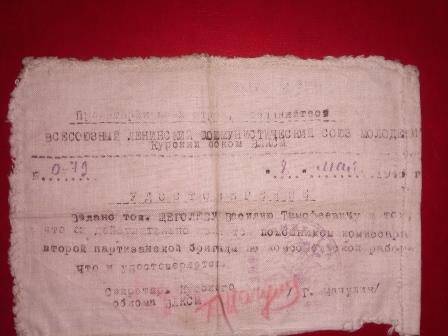 Пролетарии всех стран, соединяйтесь
ВСЕСОЮЗНЫЙ ЛЕНИНСКИЙ КОММУНИСТИЧЕСКИЙ СОЮЗ МОЛОДЕЖИ
Курский обком ВЛКСМ
0-79 "8" май 19 г
УДОСТОВЕРЕНИЕ
Выдано тов. ЩЕГОЛЕВУ Василию Тимофеевичу в том,
что он действительно помощником комиссара
второй партизанской бригады по комсомольской работе
Что и удостоверяется.
Секретарь Курского
обкома ВЛКСМ